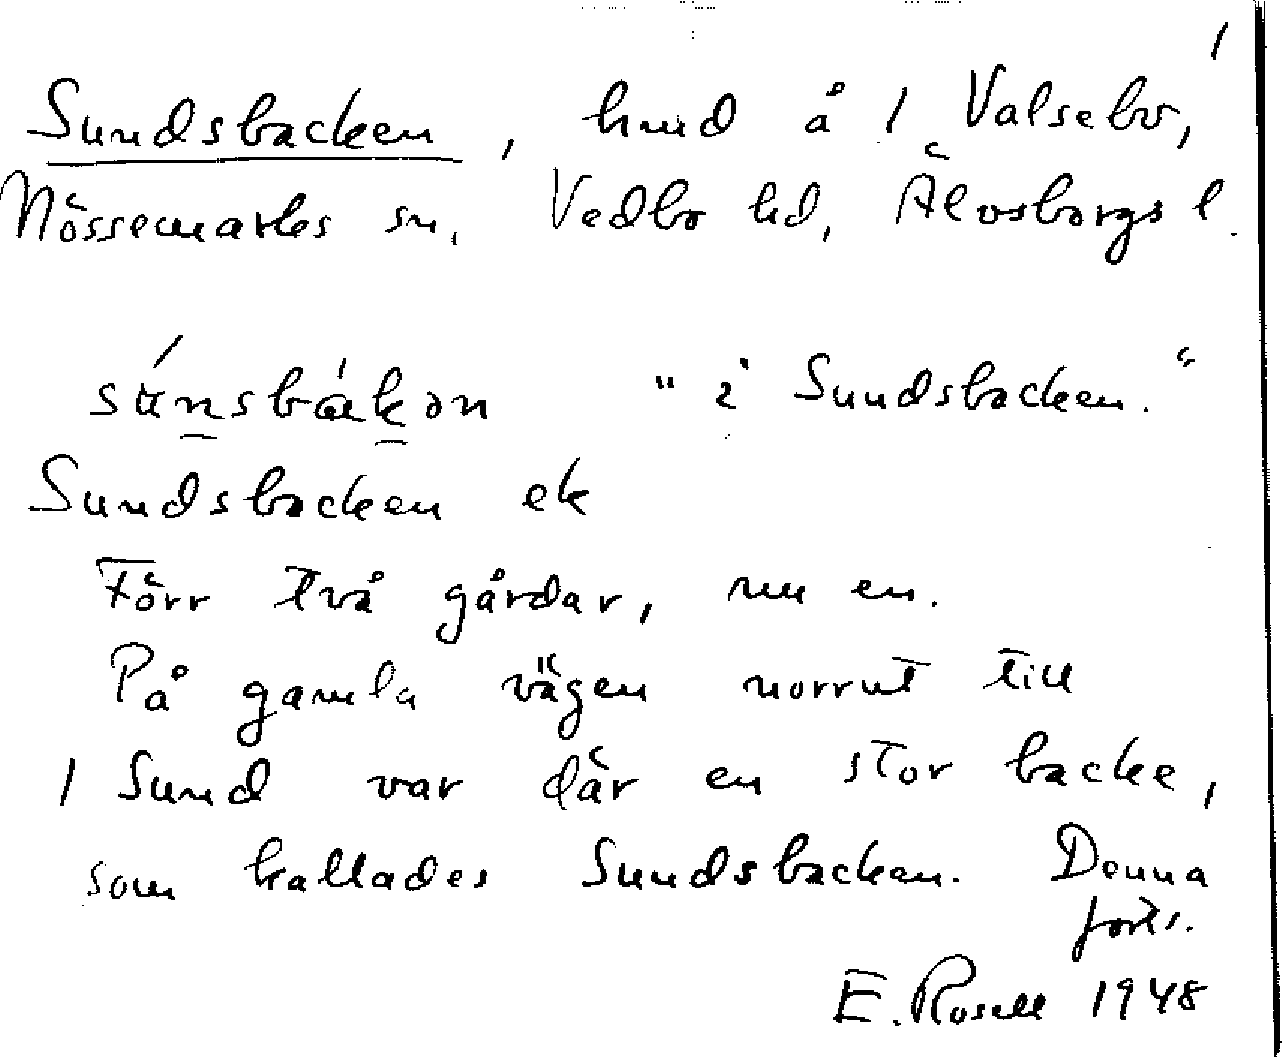 /
Sundsbacken, hmd å / Valsebo,
Nössemarks sn, Vedbo hd, Älvsborgs l.
su̇nsbákən "i Sundsbacken."
Sundsbacken ek
Förr två gårdar, nu en.
På gamla vägen norrut till
/ Sund var där en stor backe,
som kallades Sundsbacken. Denna
forts.
E. Rosell 1948